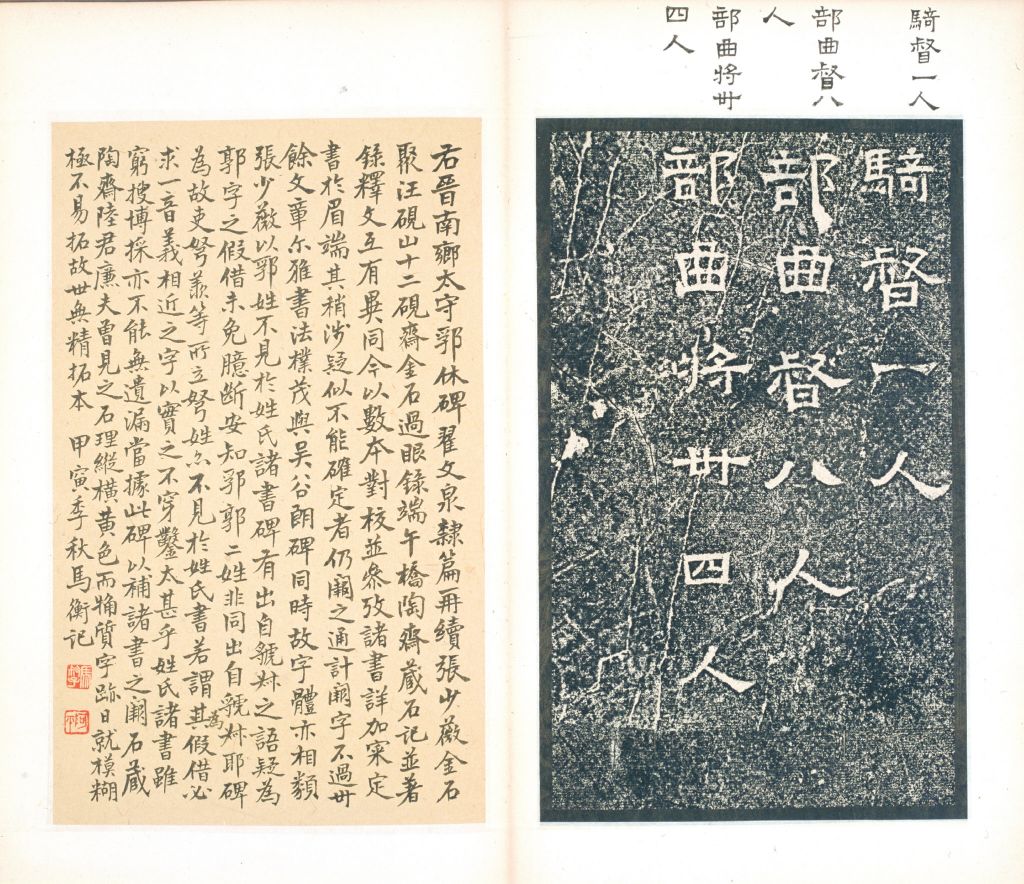 騎督一人
部曲督八
人
部曲將卅
四人
騎督一人
部曲督八人
部曲將卅四人
右晉南鄉太守郛休碑翟文泉隸篇再續張少薇金石
聚汪硯山十二硯齋金石過眼錄端午橋陶齋藏石記並著
錄釋文互有異同今以數本對校並參攷諸書詳加寀定
書於眉端其稍涉疑似不能確定者仍闕之通計闕字不過卅
餘文章尒雅書法樸茂與吴谷朗碑同時故字體亦相類
張少薇以郛姓不見於姓氏諸書碑有出自虢叔之語疑為
郭字之假借未免臆斷安知郛郭二姓非同出自虢叔耶碑
為故吏弩羕等所立弩姓亦不見於姓氏書若謂其為假借必
求一音義相近之字以實之不穿鑿太甚乎姓氏諸書雖
窮搜博採亦不能無遺漏當據此碑以補諸書之闕石藏
陶齋陸君廉夫曾見之石理縱橫黃色而觕質字跡日就模糊
極不易拓故世無精拓本 甲寅季秋馬衡記
馬衡